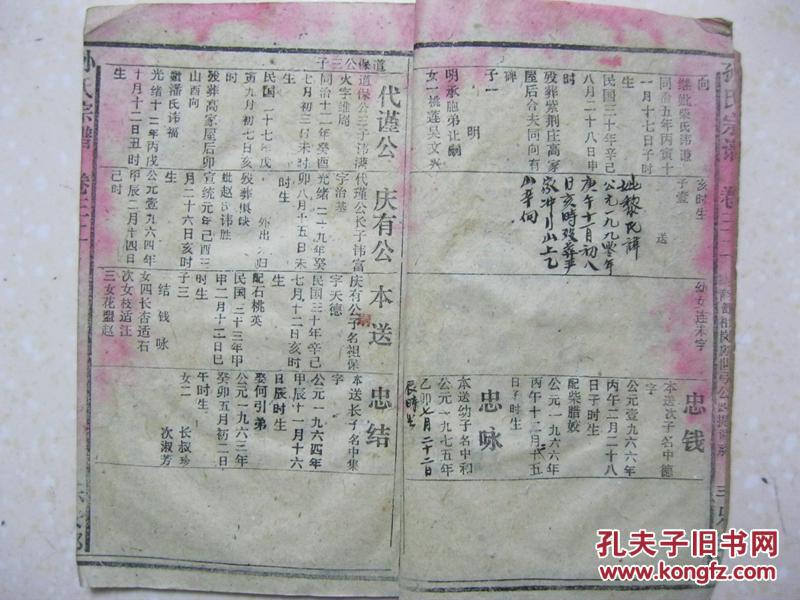 孙氏宗谱
卷二十二
向
继妣柴氏讳谦
同治五年丙寅十
一月十七日子时
生
民国三十年辛己
八月二十八日申
时
殁葬紫荆庄高家
屋后合夫同向有
碑
子一 明
明承胞弟让嗣
女一桃莲吴文兴
亥时生
子壹 送
妣黎氏諱
公元一九九零年
庚午十一月初八
日亥時殁葬尹
家冲月山上乙
山辛向
幼女连禾字
忠钱
本送次子名中德
字
公元壹九六六年
丙午二月二十八
日子时生
配柴腊姣
公元一九六六年
丙午十二月十五
日子时生
忠咏
本送幼子名中和
公元一九七五年
乙卯七月二十二日
辰時生
道保公三子
代谨公
道保公三子讳满
火字维周
同治十二年癸酉
七月初三日未时
生
民国二十七年戊
寅九月初七日亥
时
殁葬高家屋后卯
山酉向
继潘氏讳福
光绪十二年丙戌
十月十二日丑时
生
庆有公
代谨公长子讳富
字治基
光绪二十九年癸
卯八月十五日未
时生
民国 外出 归
殁葬俱缺
妣赵氏讳胜
宣统元年己酉三
月二十六日亥时
生
公元壹九六四年
甲辰二月十四日
己时
本送
庆有公子名祖保
字天德
民国三十年辛己
七月十二日亥时
生
配石桃英
民国三十三年甲
申二月十二日巳
时生
子三
结 钱 咏
女四长杏适石
次女枝适汪
三女花盟赵
忠结
本送长子名中集
字
公元一九六四年
甲辰十一月十六
日辰时生
娶何引弟
公元一九六三年
癸卯五月初二日
午时生
女二 长叔珍
次淑芳
孙氏宗谱
卷二十二
孔夫子旧书网
www.kongfz.com